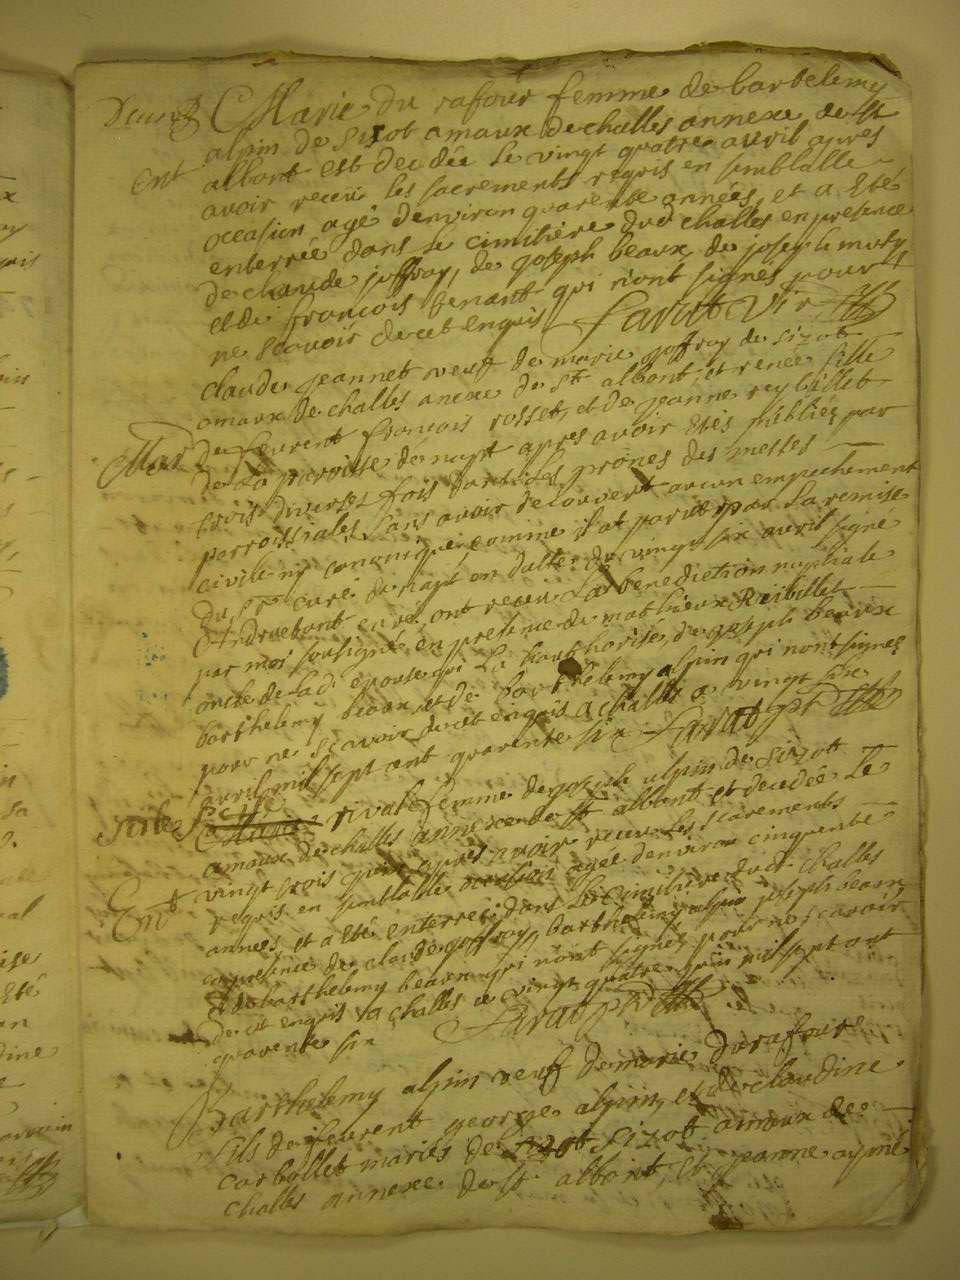 Marie du rafour femme de bartelemy
alpin de Sizot amaux de challes annexe de st
Ent
albant est decedée le vingt quatre avril apres
avoir receu les sacrements reqris en semblable
occasion agé denviron quarente années, et a eté
enterrée dans le cimitière dud challes en presence
de claude joffray, de joseph beaux, de joseph
et de francois benant qui n'ont signés pour
ne scavoir de cet enquis Savat vic
claude jeannet veuf de marie joffray de sizot
amaux de challes anexe de st albant et renée fille
Mar
de feu francois rosset, et de jeanne reybillet
de la paroisse de napt apres avoir etés publiéz par
trois diverses fois dans les prones des messes
parroissiales sans avoir decouvert aucun empechement
civile ny canonique comme il at parut par la remise
du Sr curé de napt en datte du vingt six avril signé
curé, ont receu la benediction nuptiale
par moi soussigné, en presence de mathieux Reibillet
oncle de lad epouse qui la hauthorisée, de joseph beaux
barthelemy beaux, et de barthelemy alpin qui n'ont signez
pour ne scavoir de cet enquis a challes ce vingt six
avril mil sept cent quarente six Savat ptr
rivat femme de joseph alpin de Sizott
amaux de challes annexe de st albant et decedée le
vingt trois juin apres avoir receu les scarements
Ent
reqris en semblable occasion agée denviron cinquente
années et a eté enterrée dans le cimitière dud challes
en presence de claude joffray, barthelemy alpin joseph beaux
et de barthelemy beaux qui n'ont signez pour ne scavoir
de cet enqris a challes ce vingt quatre juin mil sept cent
quarente six Savat ptr
Barthelemy alpin veuf de marie durafour
fils de feu george alpin, et de claudine
carbollet mariés de Sizot amaux de
challes annexe de st albant, et jeanne aymé